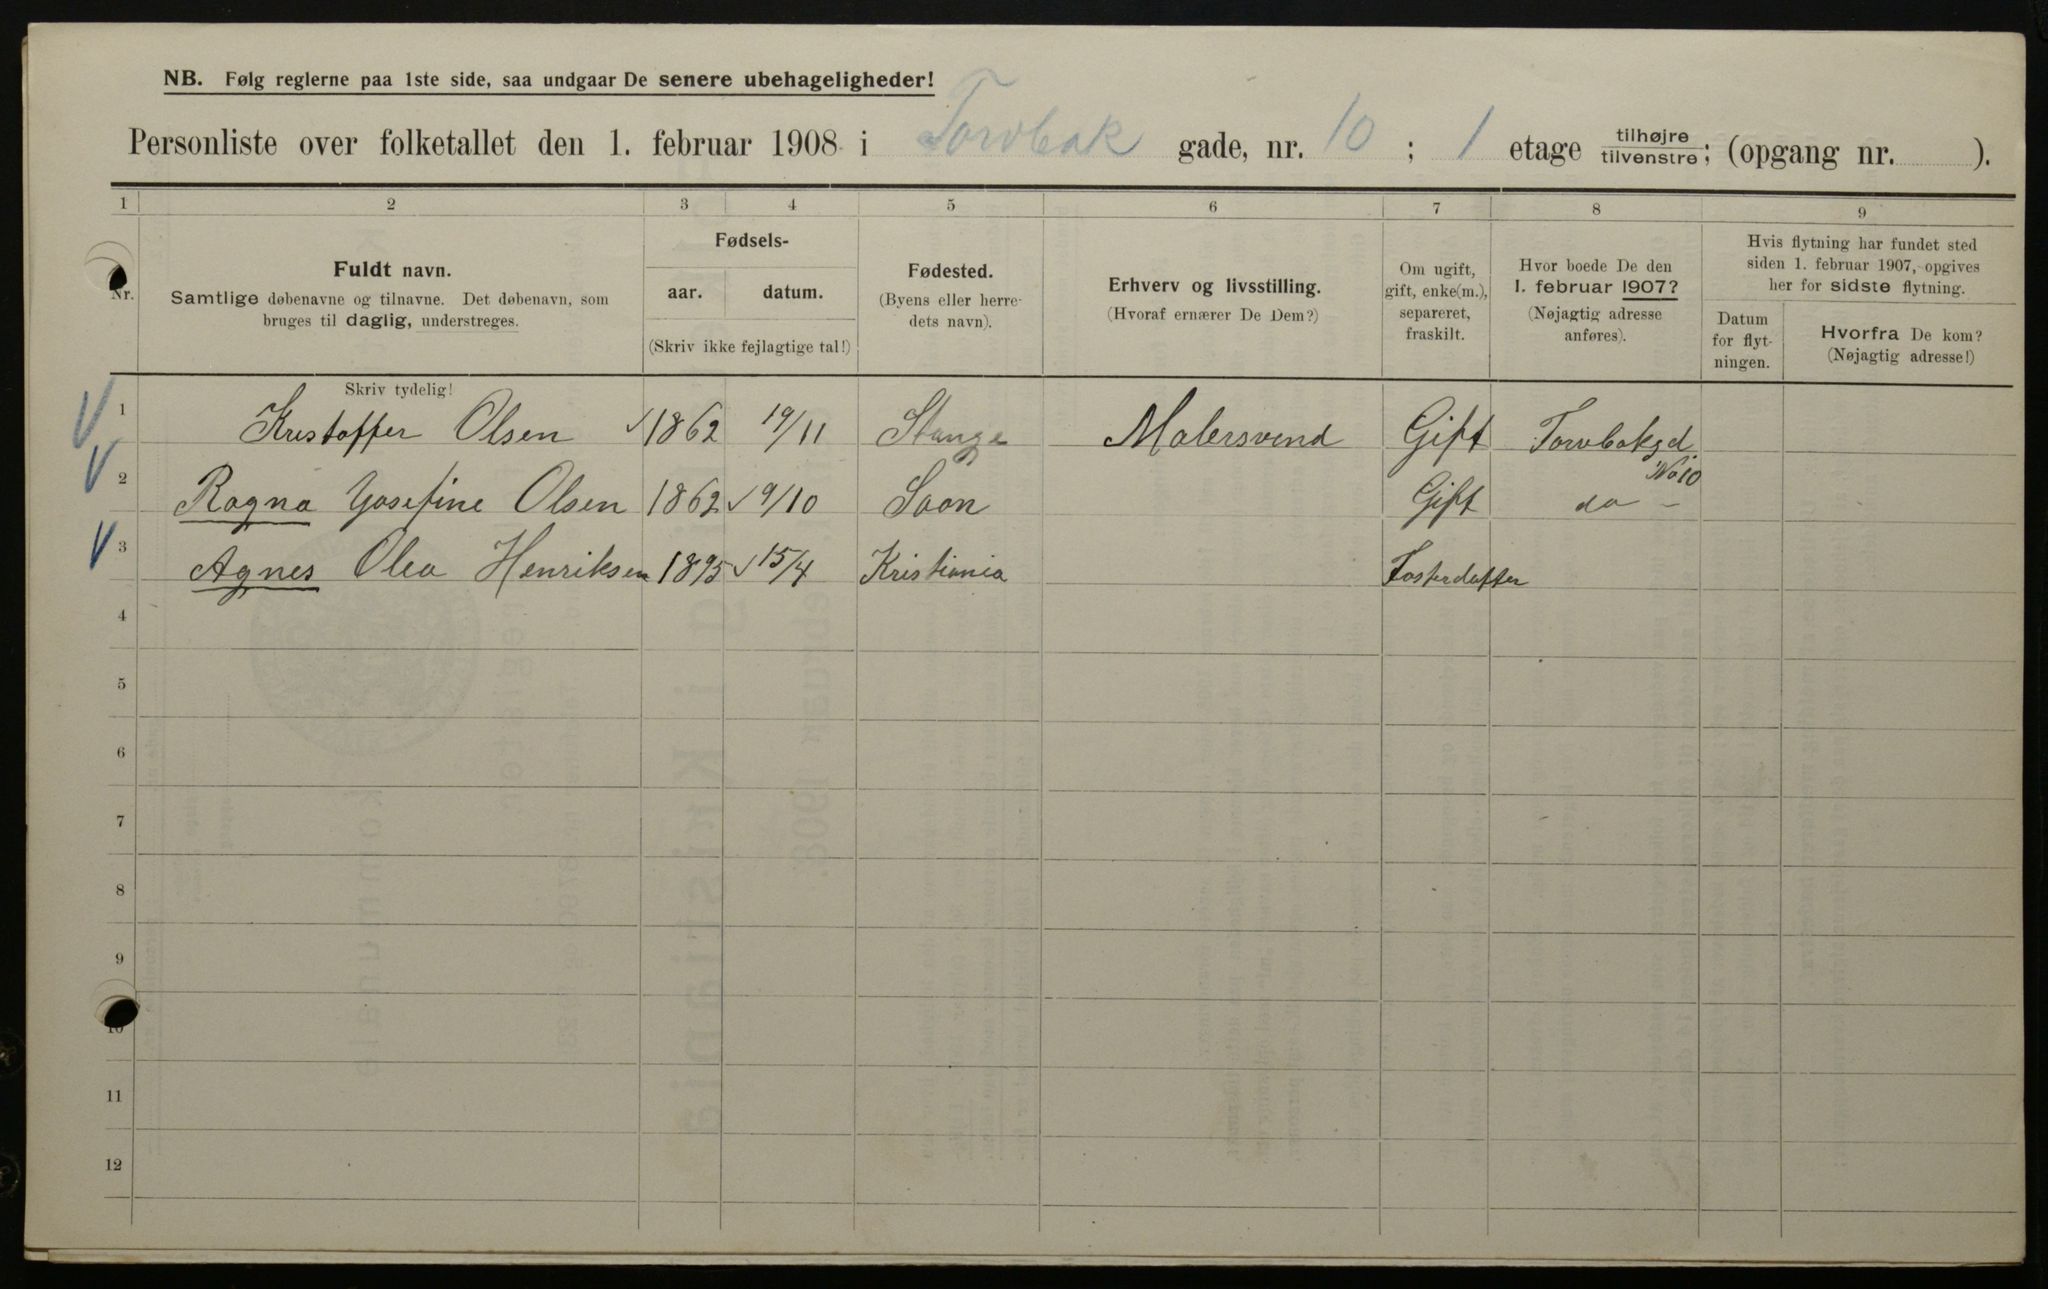 NB. Følg reglerne paa 1ste side, saa undgaar De senere ubehageligheder!
Personliste over folketallet den 1. februar 1908 i Torvbak gade, nr. 10 ; 1 etage tilhøjre/tilvenstre; (opgang nr. ).
1 2 3 4 5 6 7 8 9
Nr.
Fuldt navn.
Samtlige døbenavne og tilnavne. Det døbenavn, som
bruges til daglig, understreges.
Skriv tydelig!
Fødsels-
aar. datum.
(Skriv ikke fejlagtige tal!)
Fødested.
(Byens eller herre-
dets navn).
Erhverv og livsstilling.
(Hvoraf ernærer De Dem?)
Om ugift,
gift, enke(m.),
separeret,
fraskilt.
Hvor boede De den
1. februar 1907?
(Nøjagtig adresse
anføres).
Hvis flytning har fundet sted
siden 1. februar 1907, opgives
her for sidste flytning.
Datum
for flyt-
ningen.
Hvorfra De kom?
(Nøjagtig adresse!)
1 Kristoffer Olsen 1862 19/11 Stange Malersvend Gift Torvbakgd.
No 10
2 Ragna Josefine Olsen 1862 9/10 Soon Gift do -
3 Agnes Olea Henriksen 1895 15/4 Kristiania Fosterdatter
4
5
6
7
8
9
10
11
12